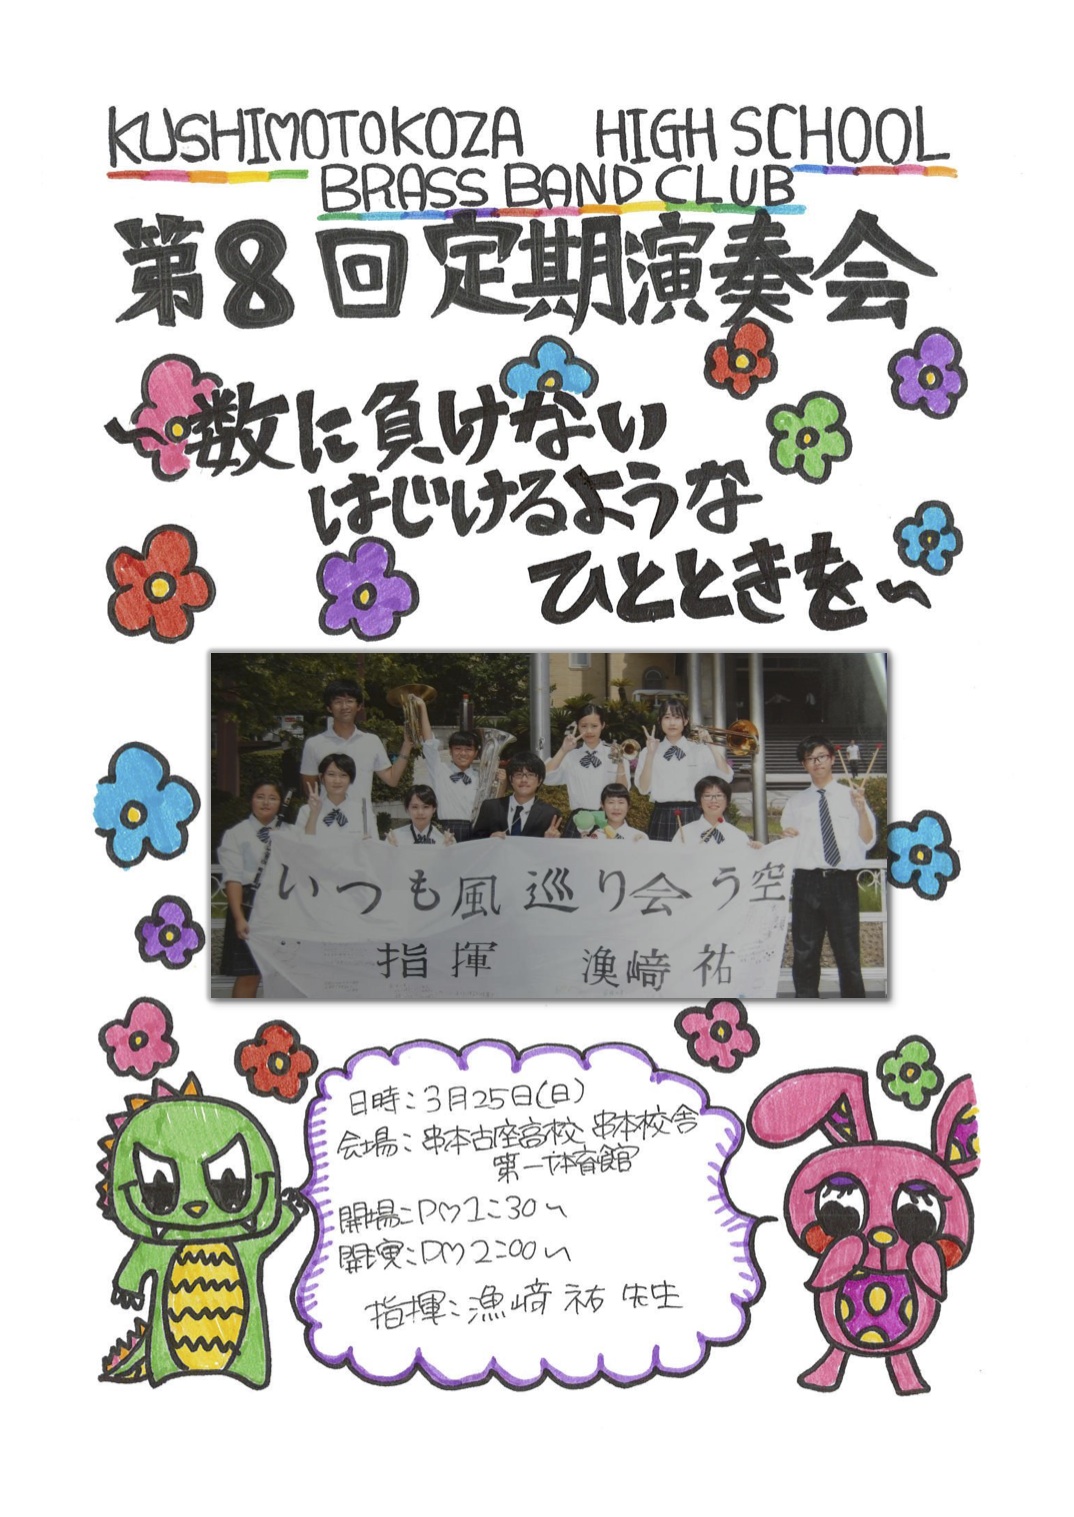 KUSHIMOTOKOZA HIGH SCHOOL
BRASS BAND CLUB
第8回定期演奏会
~数に負けない
はじけるような
ひとときを~
いつも風巡り会う空
指揮 漁﨑祐
日時:3月25日(日)
会場:串本古座高校 串本校舎
第一体育館
開場:PM1:30~
開演:PM2:00~
指揮:漁﨑 祐 先生